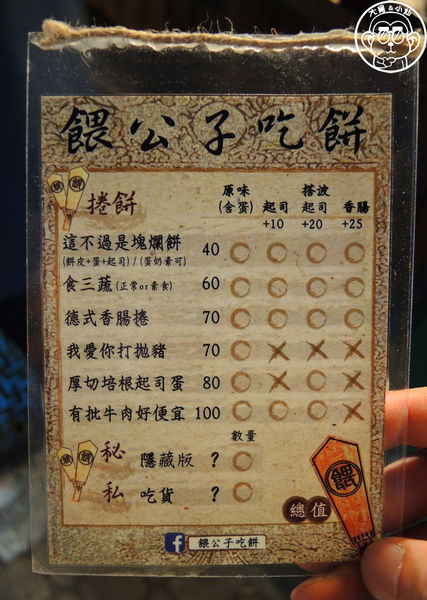 大麗&小初
餵公子吃餅
餵 餵
捲餅
原味 搭波
(含蛋) 起司 起司 香腸
+10 +20 +25
這不過是塊爛餅 40
(餅皮+蛋+起司)/(蛋奶素可)
食三蔬(正常or素食) 60
德式香腸捲 70
我愛你打拋豬 70
厚切培根起司蛋 80
有批牛肉好便宜 100
數量
秘 隱藏版 ?
私 吃貨 ?
餵
總值
f 餵公子吃餅